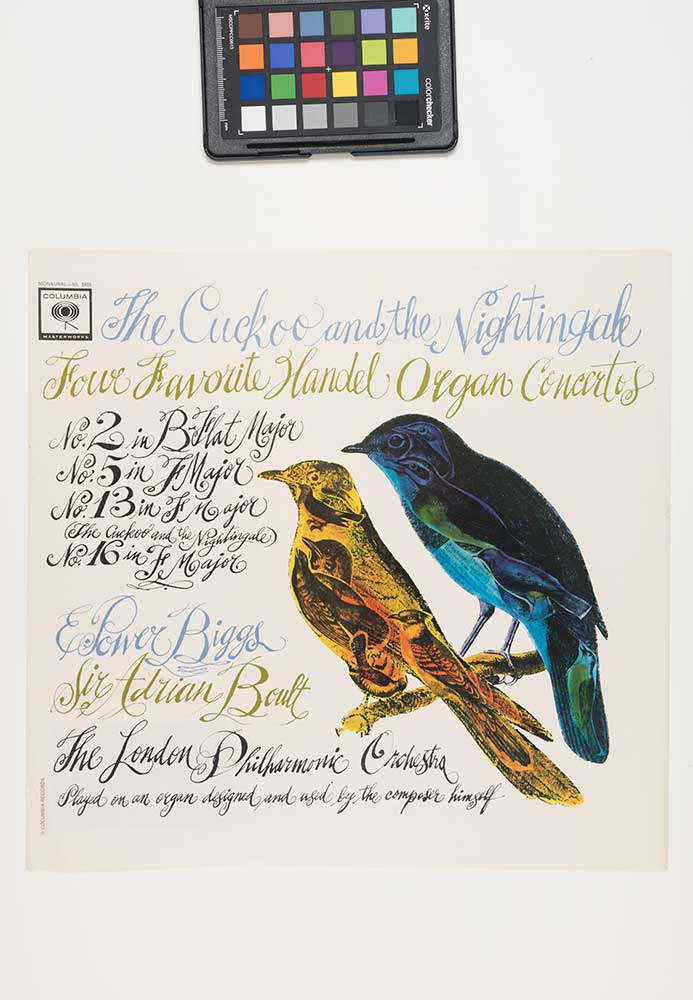 x-rite
colorchecker
MSCCPPCC0613
mm
MONAURAL—ML 5839
COLUMBIA
MASTERWORKS
The Cuckoo and the Nightingale
Four Favorite Handel Organ Concertos
No. 2 in B-Flat Major
No. 5 in F Major
No. 13 in F Major
(The Cuckoo and the Nightingale)
No. 16 in F Major
E. Power Biggs
Sir Adrian Boult
The London Philharmonic Orchestra
Played on an organ designed and used by the composer himself
© COLUMBIA RECORDS